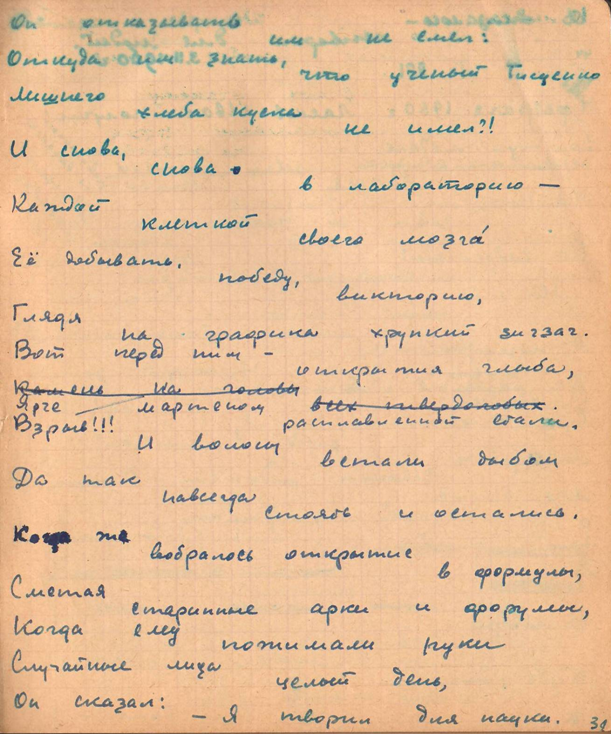 Он отказывать
им не смел:
Откуда им знать,
что ученый Тищенко
Лишнего
хлеба куска
не имел?!
И снова,
снова
в лабораторию —
Каждой
клеткой
своего мозга
Её добывать,
победу,
викторию,
Глядя
на графика хрупкий зигзаг.
Вот перед ним —
открытия глыба,
Камень на головы
всех твердоловых.
Ярче мартеном
расплавленной стали.
Взрыв!!!
И волосы
встали дыбом
Да так
навсегда
стоять и остались.
Когда же
вобралось открытие
в формулы,
Сметая
старинные арки и форумы,
Когда ему
пожимали руки
Случайные лица
целый день,
Он сказал:
— Я творил для науки.